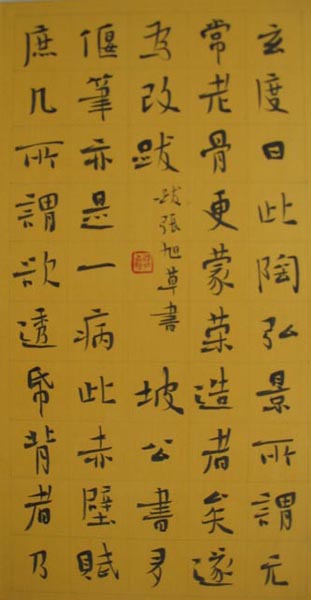 玄度曰此陶弘景所謂元
常老骨更蒙榮造者矣遂
為改跋
跋張旭草書
坡公書多
偃筆亦是一病此赤壁賦
庶几所謂欲透帋背者乃